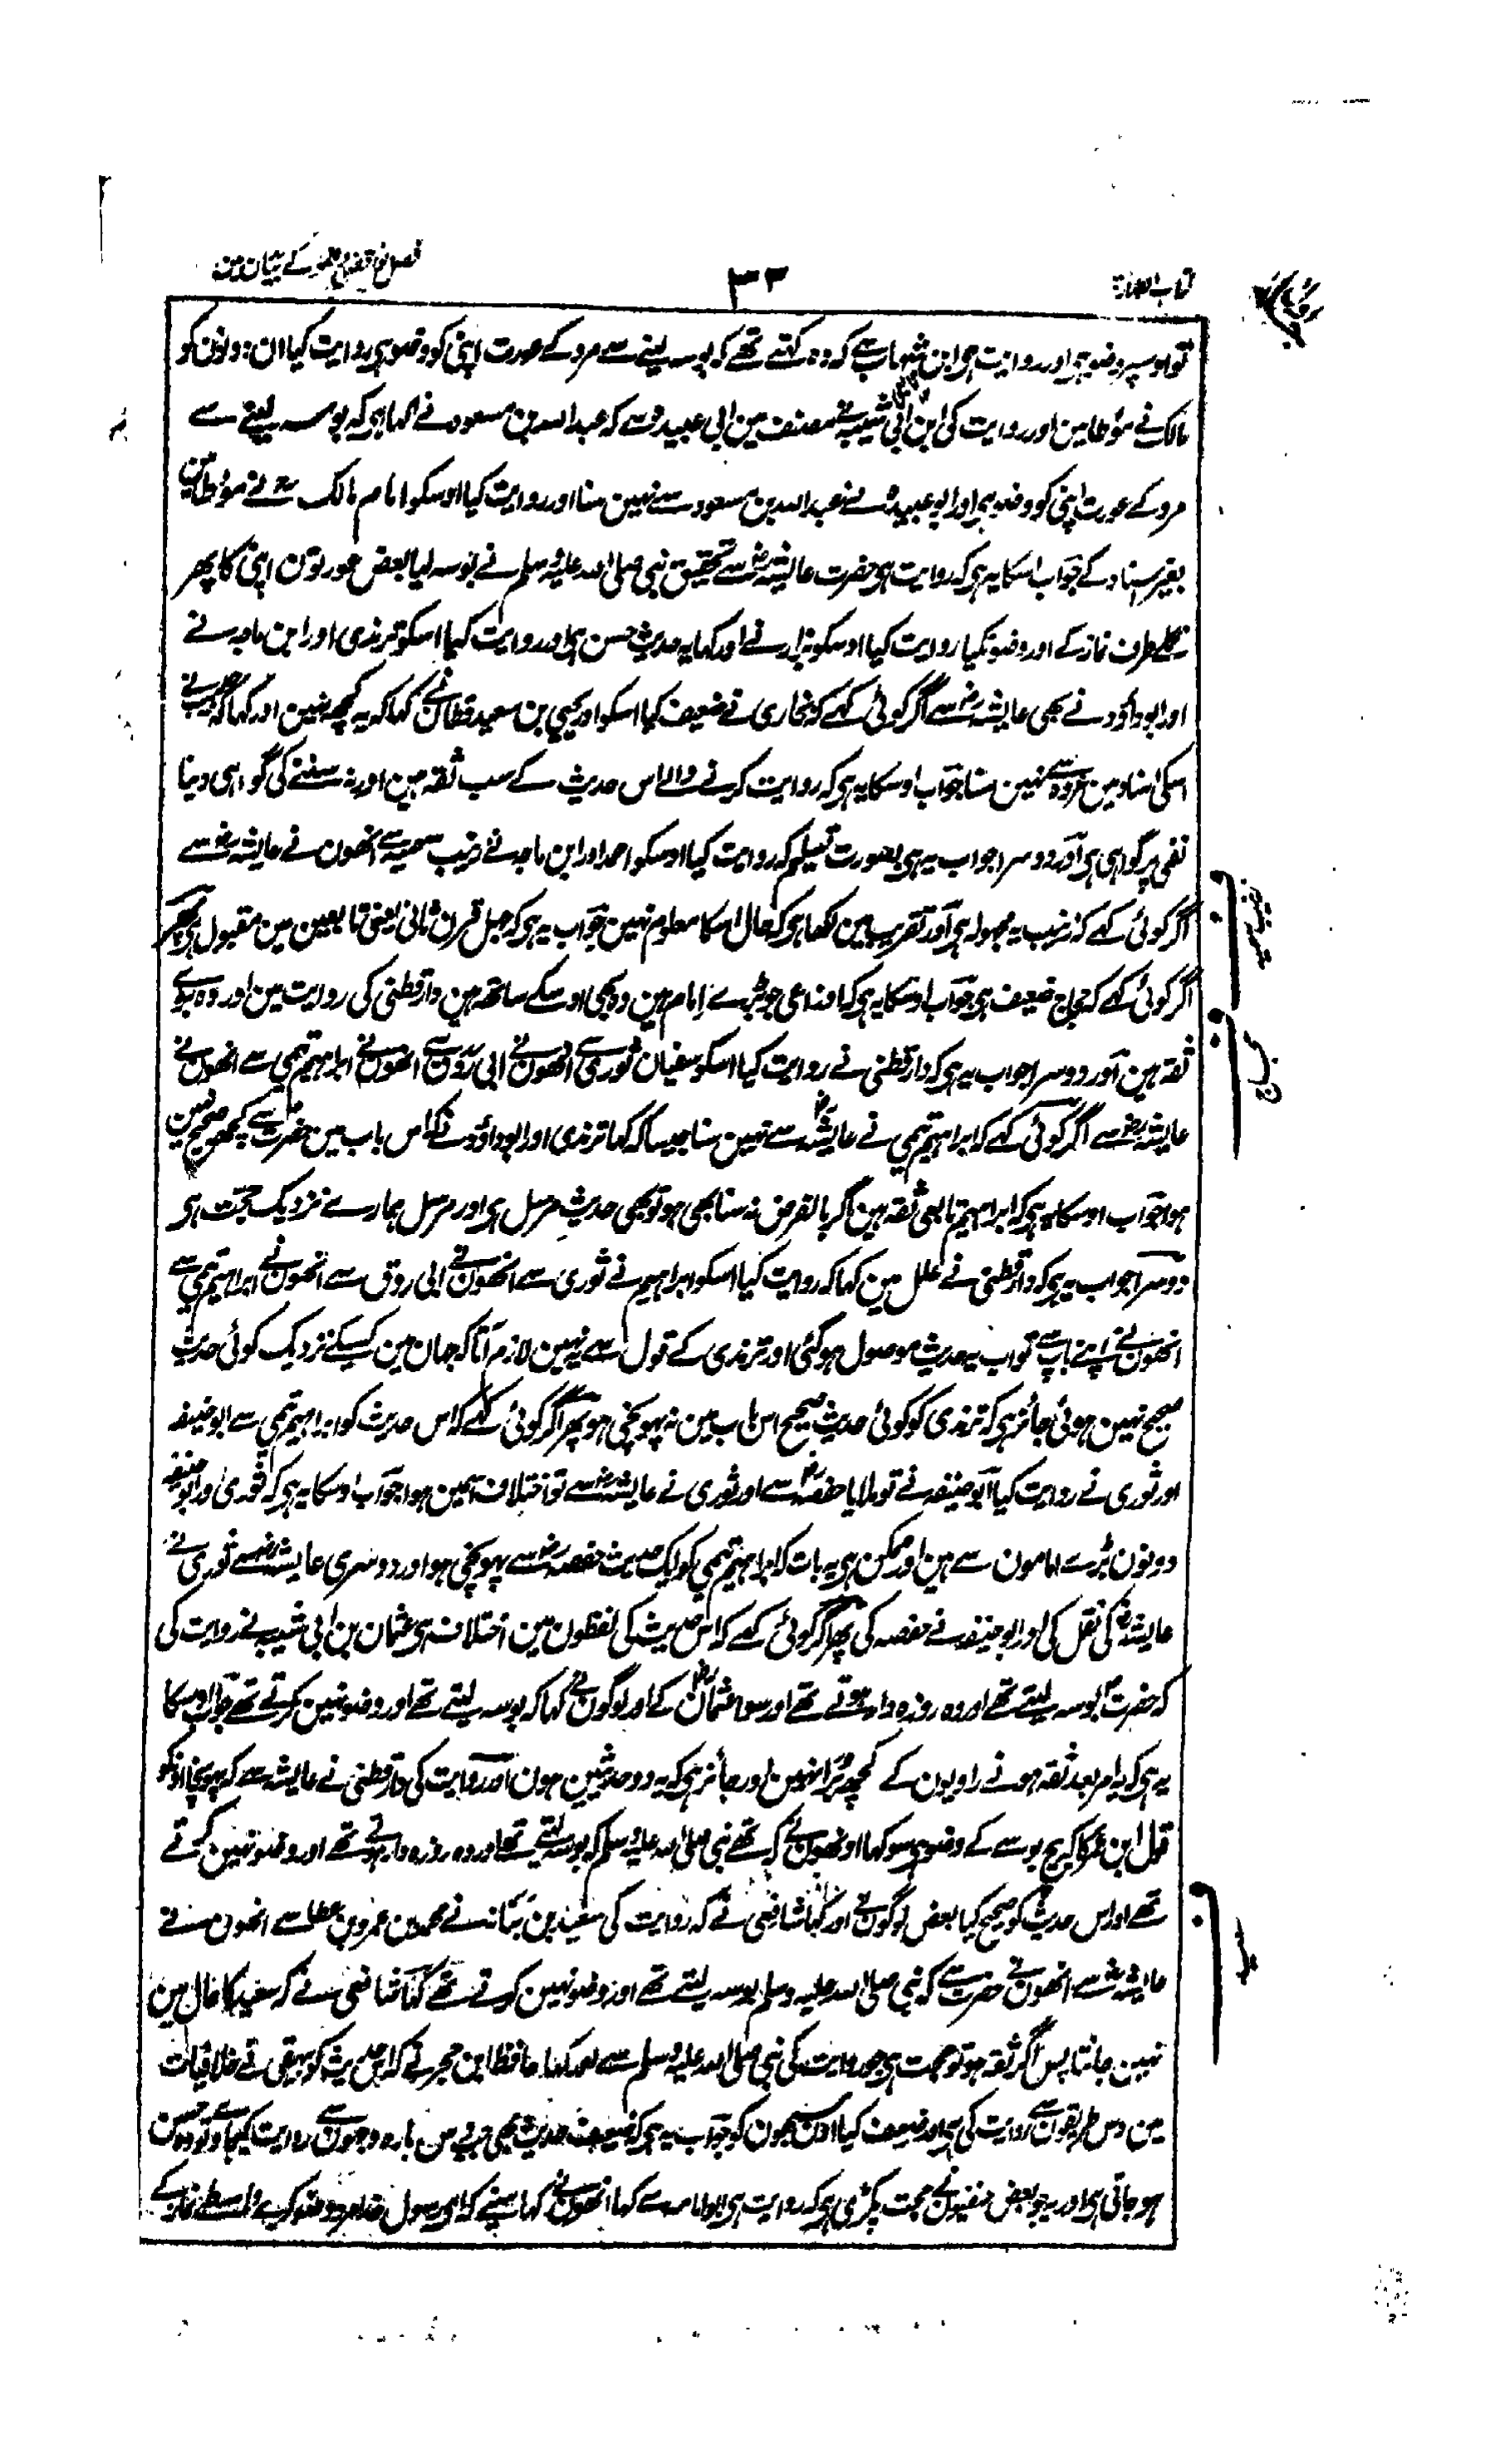 کتاب الطهارة
۳۳
فصل نواقض وضو کے بیان مین
تو اوسپر وضو ہی اور روایت ہی ابن شہاب سے کہ وہ کہتے تھے کہ بوسہ لینے سے مرد کے عورت اپنی کو وضو ہی روایت کیا ان دونون کو
مالک نے مؤطا مین اور روایت کی ابن ابی شیبہ نے مصنف مین ابی عبیدہ سے کہ عبداللہ بن مسعود نے کہا ہی کہ بوسہ لینے سے
مرد کے عورت اپنی کو وضو ہی اور ابو عبیدہ نے عبداللہ بن مسعود سے نہین سنا اور روایت کیا اوسکو امام مالک نے مؤطا مین
بغیر اسناد کے جواب اسکا یہ ہی کہ روایت ہی حضرت عایشہ رض سے تحقیق نبی صلی اللہ علیہ وسلم نے بوسہ لیا بعض عورتون اپنی کا پھر
نکلے طرف نماز کے اور وضو نکیا روایت کیا اوسکو بزار نے اور کہا یہ حدیث حسن ہی اور روایت کیا اسکو ترمذی اور ابن ماجہ نے
اور ابو داؤد نے بھی عایشہ رض سے اگر کوئی کہے کہ بخاری نے ضعیف کیا اسکو اور یحیی بن سعید قطان نے کہا کہ یہ کچھ نہین اور کہا کہ حبیب نے
اسکی اسناد مین عروہ سے نہین سنا جواب اوسکا یہ ہی کہ روایت کرنے والے اس حدیث کے سب ثقہ ہین اور نہ سننے کی گواہی دینا
نفی پر گواہی ہی اور دوسرا جواب یہ ہی بصورت تسلیم کہ روایت کیا اوسکو احمد اور ابن ماجہ نے زینب سہمیہ سے انھون نے عایشہ رض سے
اگر کوئی کہے کہ زینب یہ مجہولہ ہی اور تقریب مین لکھا ہی کہ حال اسکا معلوم نہین جواب یہ ہی کہ جہل قرن ثانی یعنی تابعین مین مقبول ہی پھر
اگر کوئی کہے کہ حجاج ضعیف ہی جواب اوسکا یہ ہی کہ اوزاعی جو بڑے امام ہین وہ بھی اوسکے ساتھ ہین دارقطنی کی روایت مین اور وہ بڑے
ثقہ ہین اور دوسرا جواب یہ ہی کہ دارقطنی نے روایت کیا اسکو سفیان ثوری سے انھون نے ابی روق سے انھون نے ابراہیم تیمی سے انھون نے
عایشہ رض سے اگر کوئی کہے کہ ابراہیم تیمی نے عایشہ رض سے نہین سنا جیسا کہ کہا ترمذی اور ابو داؤد نے کہ اس باب مین حضرت سے کچھ صحیح نہین
ہوا جواب اوسکا یہ ہی کہ ابراہیم تابعی ثقہ ہین اگر بالفرض نہ سنا بھی ہو تو بھی حدیث مرسل ہی اور مرسل ہمارے نزدیک حجت ہی
دوسرا جواب یہ ہی کہ دارقطنی نے علل مین کہا کہ روایت کیا اسکو ابراہیم نے ثوری سے انھون نے ابی روق سے انھون نے ابراہیم تیمی سے
انھون نے اپنے باپ سے تو اب یہ حدیث موصول ہوگئی اور ترمذی کے قول سے یہ نہین لازم آتا کہ جہان مین کسیکے نزدیک کوئی حدیث
صحیح نہین ہوئی جائز ہی کہ ترمذی کو کوئی حدیث صحیح اس باب مین نہ پہونچی ہو پھر اگر کوئی کہے کہ اس حدیث کو ابراہیم تیمی سے ابو حنیفہ
اور ثوری نے روایت کیا ابو حنیفہ نے تو ملایا حفصہ رض سے اور ثوری نے عایشہ رض سے تو اختلاف اسمین ہوا جواب اوسکا یہ ہی کہ ثوری اور ابو حنیفہ
دونون بڑے امامون سے ہین اور ممکن ہی یہ بات کہ ابراہیم تیمی کو ایک حدیث حفصہ رض سے پہونچی ہو اور دوسری عایشہ رض سے ثوری نے
عایشہ رض کی نقل کی اور ابو حنیفہ نے حفصہ کی پھر اگر کوئی کہے کہ اس حدیث کی لفظون مین اختلاف ہی عثمان بن ابی شیبہ نے روایت کی
کہ حضرت بوسہ لیتے تھے اور وہ روزہ دار ہوتے تھے اور سوا عثمان کے اور لوگون نے کہا کہ بوسہ لیتے تھے اور وضو نہین کرتے تھے جواب اوسکا
یہ ہی کہ یہ امر بعد ثقہ ہونے راویون کے کچھ مضر نہین اور جائز ہی کہ یہ دو حدیثین ہون اور روایت کی دارقطنی نے عایشہ سے کہ پہونچا اونکو
قول ابن عمر کا کہ بیچ بوسے کے وضو ہی سو کہا اونھون نے کہ تھے نبی صلی اللہ علیہ وسلم کہ بوسہ لیتے تھے اور وہ روزہ دار ہوتے تھے اور وضو نہین کرتے
تھے اور اس حدیث کو صحیح کیا بعض لوگون نے اور کہا شافعی نے کہ روایت کی سعید بن بنانہ نے محمد بن عمرو بن عطا سے انھون نے
عایشہ رض سے انھون نے حضرت سے کہ نبی صلی اللہ علیہ وسلم بوسہ لیتے تھے اور وضو نہین کرتے تھے کہا شافعی نے کہ سعید کا حال مین
نہین جانتا پس اگر ثقہ ہو تو حجت ہی جو روایت کی نبی صلی اللہ علیہ وسلم سے اور کہا حافظ ابن حجر نے کہ اس حدیث کو بیہقی نے خلافیات
مین دس طریقون سے روایت کی ہی اور ضعیف کیا اون سبھون کو جواب یہ ہی کہ ضعیف حدیث بھی جب دس بارہ وجہون سے روایت کیجاوے تو وہ حسن
ہو جاتی ہی اور یہ جو بعض حنفیون نے حجت پکڑی ہی کہ روایت ہی ابو امامہ سے کہا انھون نے کہا مینے کہ ای رسول خدا مرد وضو کرے واسطے نماز کے